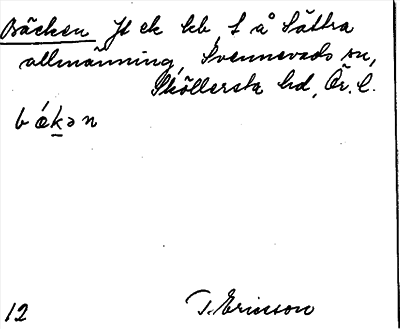 Bäcken Jt ek bb, t å Sättra
allmänning, Svennevads sn,
Sköllersta hd, Ör. l.
b ǽk̲ə n
12 T. Ericsson